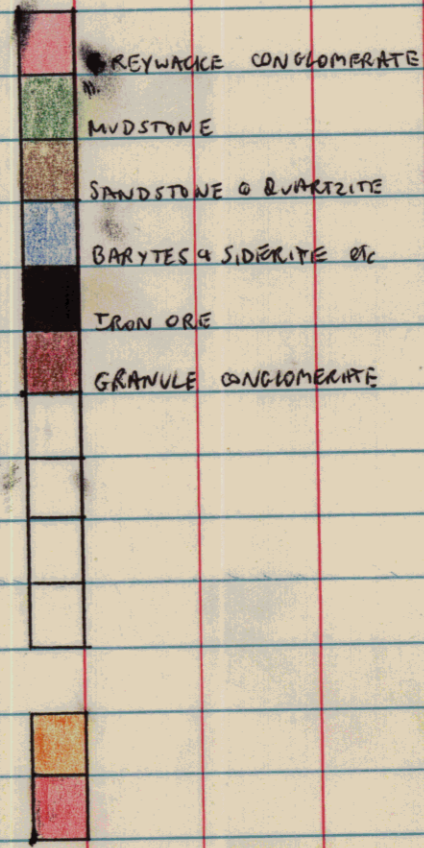 GREYWACKE CONGLOMERATE
MUDSTONE
SANDSTONE & QUARTZITE
BARYTES & SIDERITE etc
IRON ORE
GRANULE CONGLOMERATE